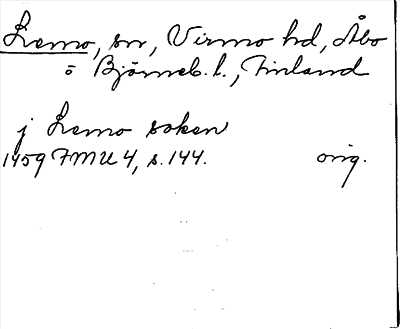 Lemo, sn, Virmo hd, Åbo
o Björneb. l., Finland
j Lemo soken
1459 FMU 4, s. 144. orig.